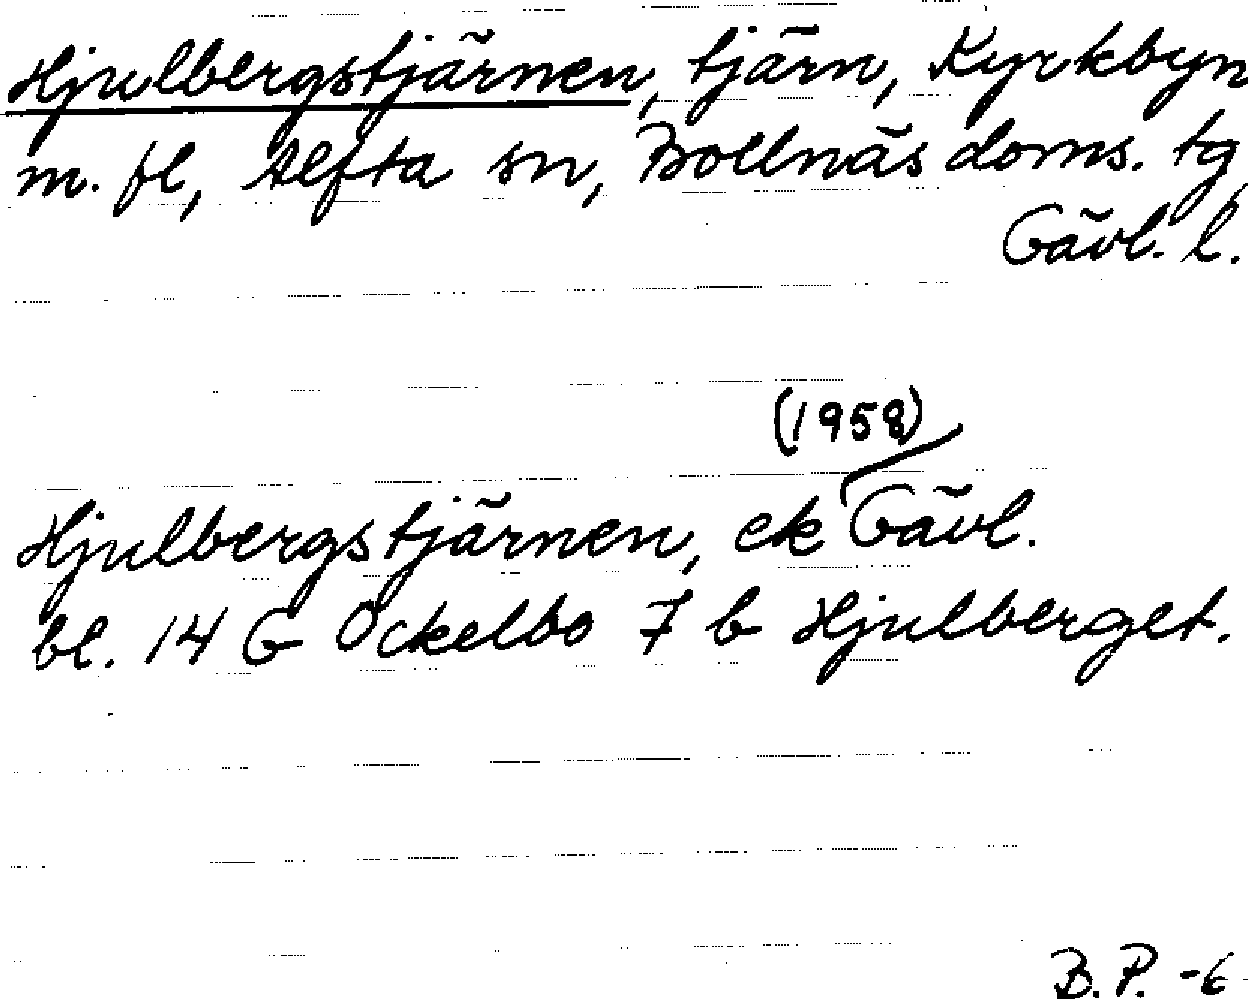 Hjulbergstjärnen, tjärn, Kyrkbyn
m. fl, Alfta sn, Bollnäs doms. tg,
Gävl. l.
(1958)
Hjulbergstjärnen, ek Gävl.
bl. 14 G Ockelbo 7 b Hjulberget.
B.P. -6